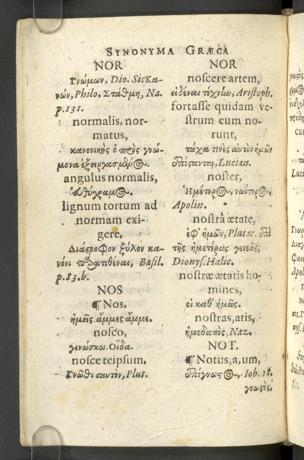 SYNONYMA GRÆCA
NOR
Γνώμων, Dio. Sic. Κα-
νών, Philo. Στάθμη, Na.
p. 131.
normalis, nor-
matus,
κανονικὸς ὁ πρὸς γνώ-
μονα
angulus normalis,
lignum tortum ad
normam exi-
gere,
Διάστροφον ξύλον κα-
νόνι Basil.
p. 83. b.
NOS
¶ Nos.
ἡμεῖς. ἄμμες ἄμμε.
nosco,
γινώσκω. Οἶδα.
nosce teipsum,
Γνῶθι σαυτὸν, Plut.
NOR
noscere artem,
εἰδέναι τέχνην, Aristoph.
fortasse quidam ve-
strum eum no-
runt,
τάχα Lucian.
noster,
Ἡμέτερος,
Apollin.
nostrâ ætate,
ἐφ' ἡμῶν, Plutar. ἐπὶ
τῆς ἡμετέρας γενεᾶς,
Dionys. Halic.
nostræ ætatis ho-
mines,
οἱ καθ' ἡμᾶς.
nostras, atis,
ἡμεδαπὸς, Naz.
NOT.
¶ Notus, a, um,
Iob. 18.